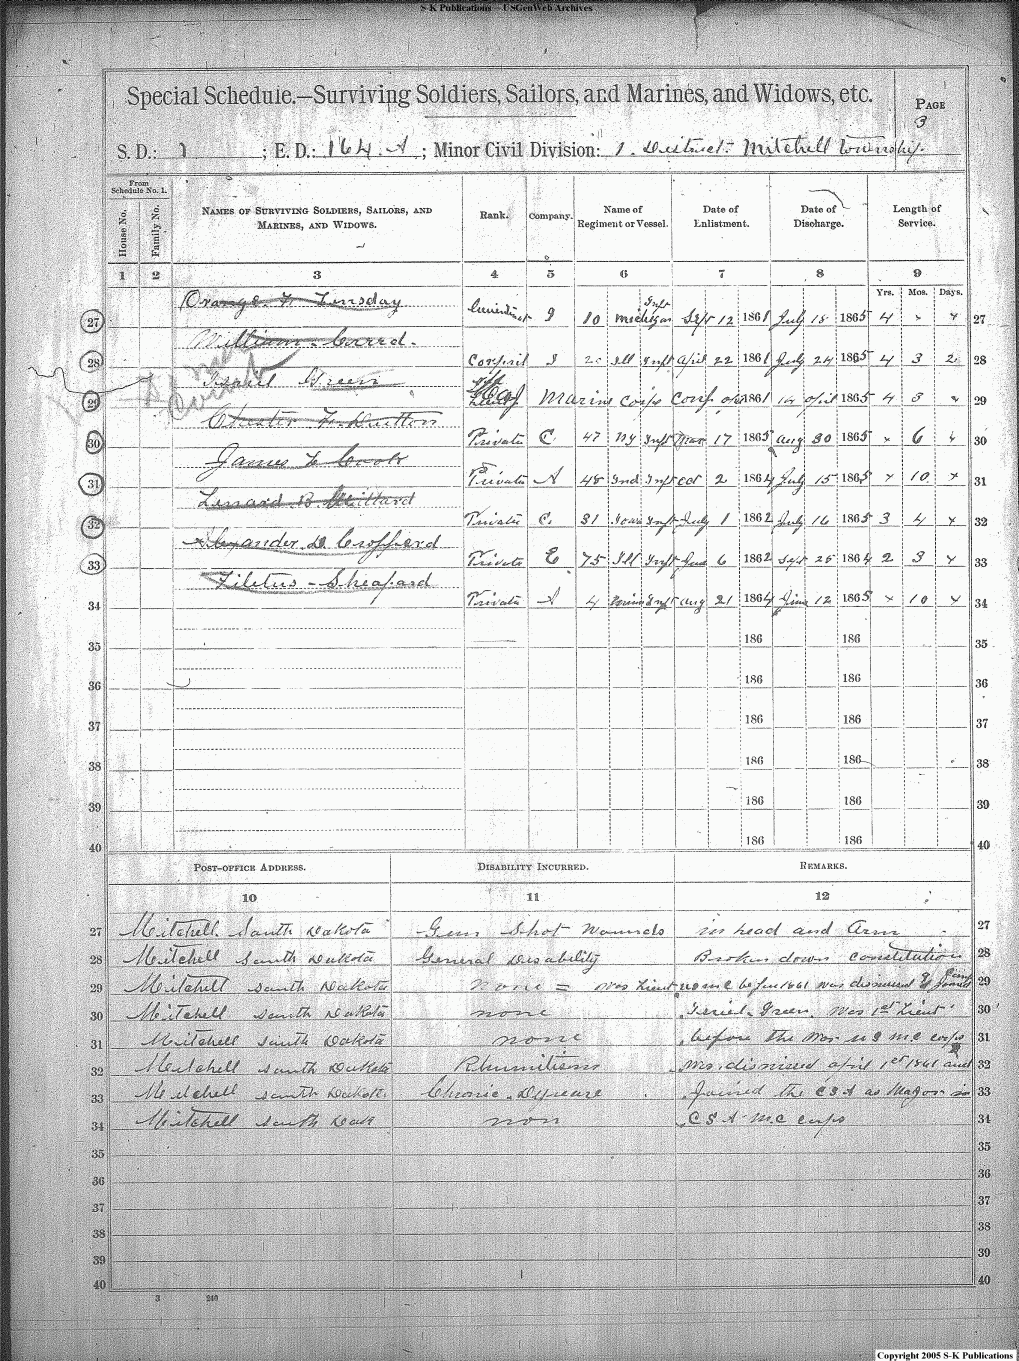 S-K Publications - USGenWeb Archives
Special Schedule.—Surviving Soldiers, Sailors, and Marines, and Widows, etc.
PAGE
3
S. D.: 1 ; E. D.: 164. A ; Minor Civil Division: 1. District. Mitchell Township.
From Schedule No. 1.
House No.
Family No.
NAMES OF SURVIVING SOLDIERS, SAILORS, AND MARINES, AND WIDOWS.
Rank.
Company.
Name of Regiment or Vessel.
Date of Enlistment.
Date of Discharge.
Length of Service.
1 2 3 4 5 6 7 8 9
Yrs. Mos. Days.
27 10 Michigan Inft Sept 12 1861 July 18 1865 4 " " 27
William
28 Corporil Ill Inft April 22 1861 July 24 1865 4 3 2 28
Israel Green
29 Maj Marine Corps Conf 1861 14 April 1865 4 3 " 29
Chester
30 Private C. 47 NY Inft Mar 17 1865 Aug 30 1865 " 6 30
James
31 Private A 48 Ind Inft oct 2 1864 July 15 1865 " 10 " 31
Millard
32 Private C. 31 Iowa Inft July 1 1862 July 16 1865 3 4 " 32
Alexander D.
33 Private E 75 Ill Inft June 6 1862 Sept 25 1864 2 3 " 33
Filetus - Sheapard
34 Private A 4 Inft Aug 21 1864 June 12 1865 " 10 " 34
35 186 186 35
36 186 186 36
37 186 186 37
38 186 186 38
39 186 186 39
40 186 186 40
POST-OFFICE ADDRESS.
DISABILITY INCURRED.
REMARKS.
10 11 12
27 Mitchell. South Dakota Gun Shot Wounds in head and Arm 27
28 Mitchell South Dakota General Disability Broken down constitution 28
29 Mitchell South Dakota none = was Lieut U S M C before 1861 was dismissed & Joined 29
30 Mitchell South Dakota none Green. Was 1st Lieut 30
31 Mitchell South Dakota none before the War U S M C corps 31
32 Mitchell South Dakota Rhumitism dismissed April 1st 1861 and 32
33 Mitchell South Dakota. Chronic Joined the C S A as Major in 33
34 Mitchell South Dak non C S A M C corps 34
35 35
36 36
37 37
38 38
39 39
40 40
3 240
Copyright 2005 S-K Publications